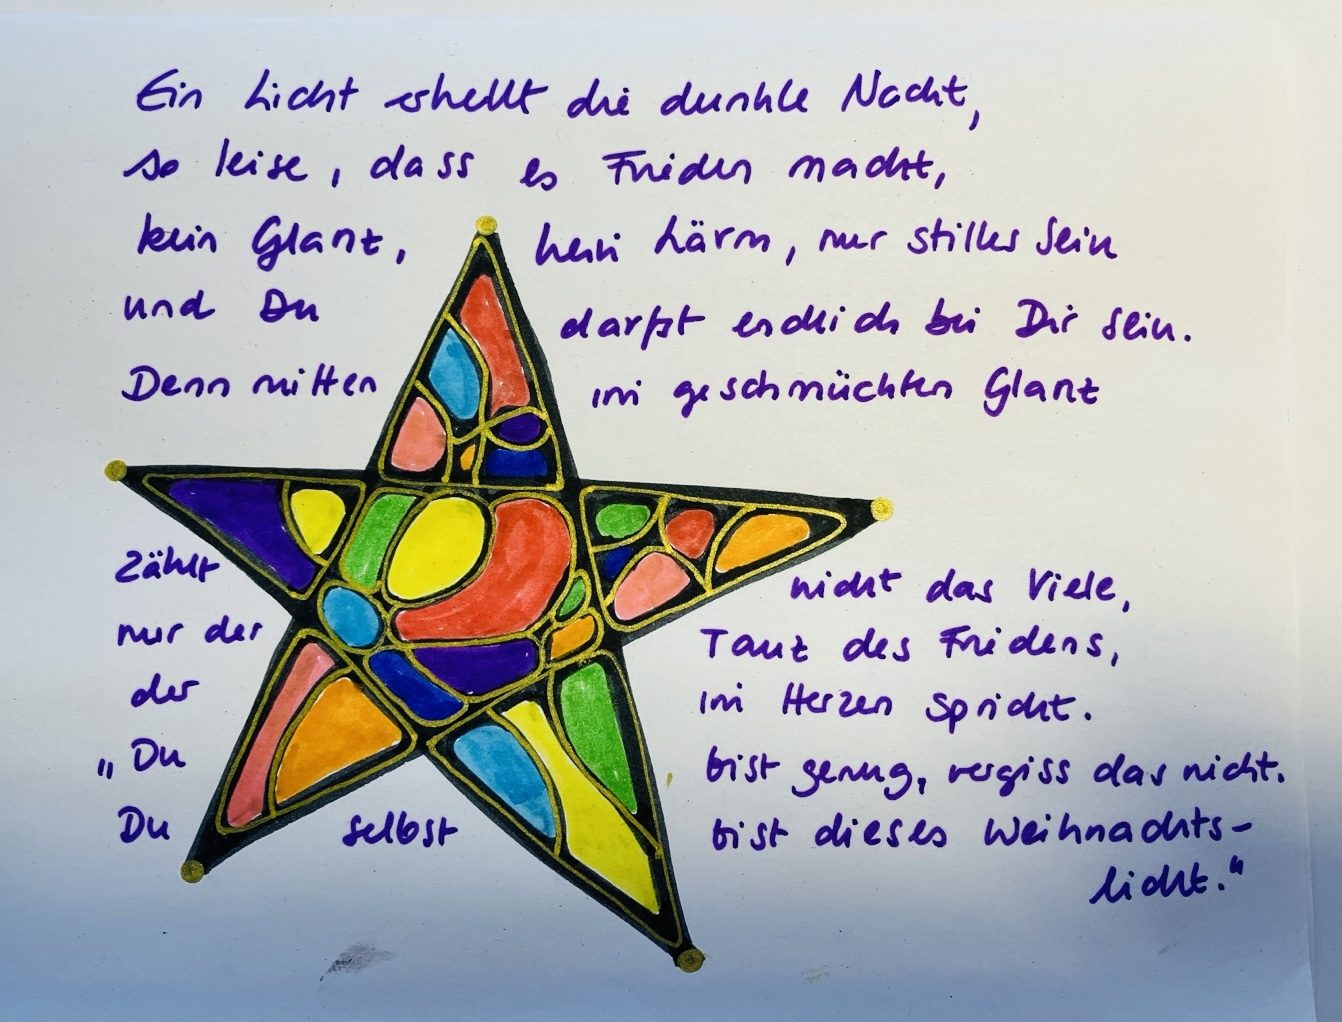 Ein Licht erhellt die dunkle Nacht,
so leise, dass es Frieden macht,
kein Glanz, kein Lärm, nur stilles Sein
und Du darfst endlich bei Dir sein.
Denn mitten im geschmückten Glanz
zählt nicht das Viele,
nur der Tanz des Friedens,
der im Herzen spricht.
„Du bist genug, vergiss das nicht.
Du selbst bist dieses Weihnachts-
licht."